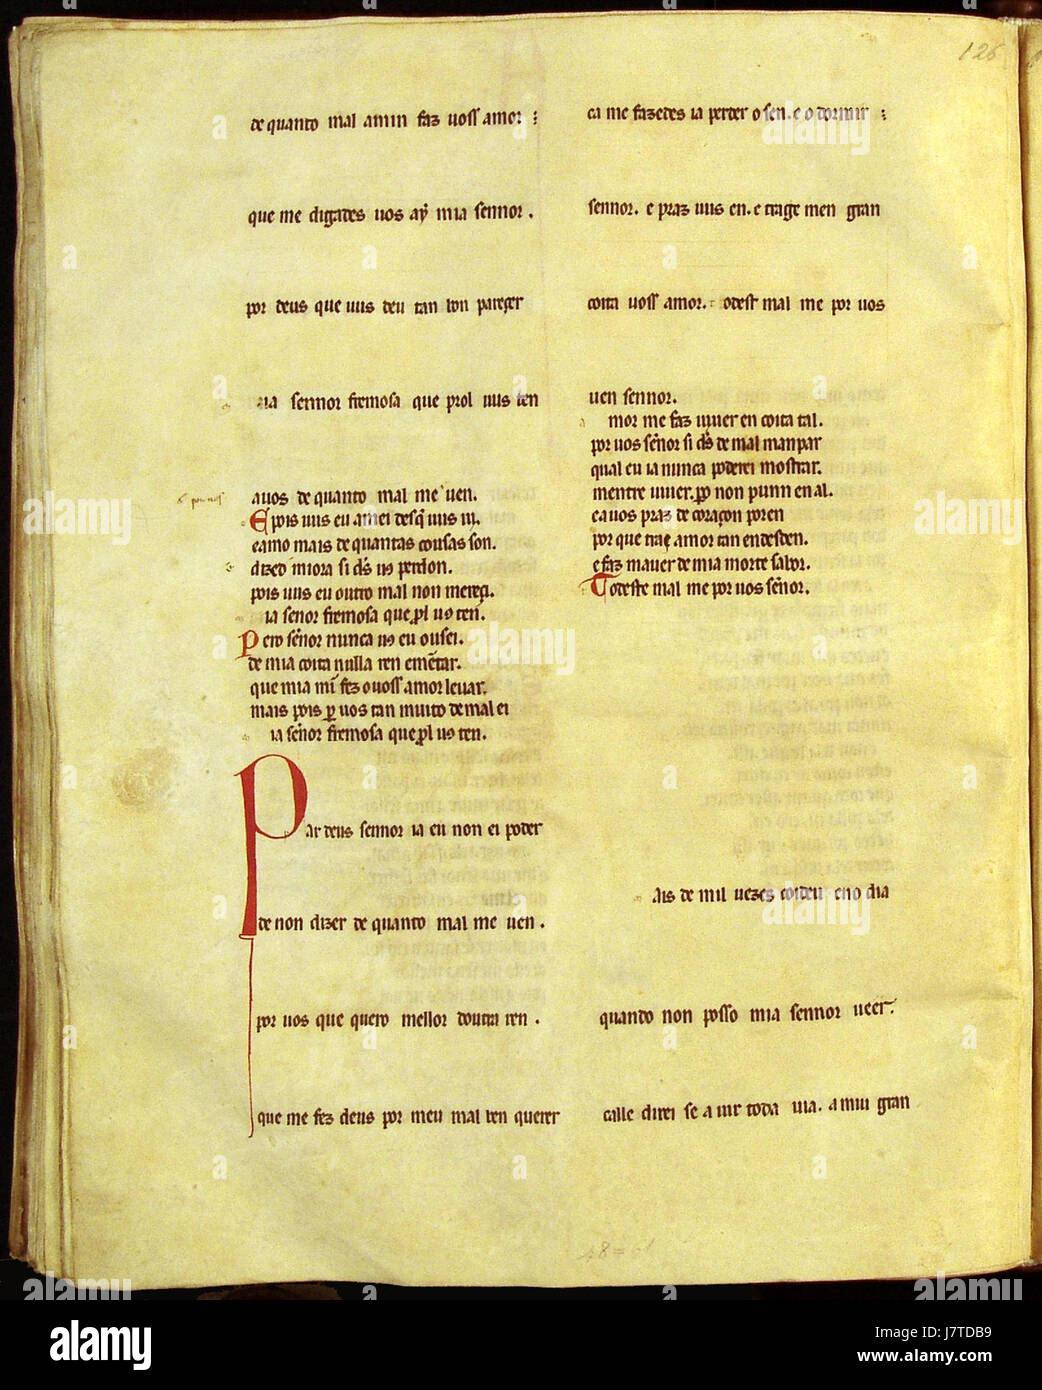 126
de quanto mal amin faz uoss amor :
que me digades uos aẏ mia sennor .
por deus que uus deu tan bon pareçer
ia sennor fremosa que prol uus ten
auos de quanto mal me uen.
E pois uus eu amei desq̄ uus ui.
eamo mais de quantas cousas son.
dized miora si d̄s us perdon.
pois uus eu outro mal non mereçi.
ia senor fremosa que ꝓl us ten.
Pero sen̄or nunca us eu ousei.
de mia coita nulla ren emētar.
que mia mī fez o uoss amor leuar.
mais pois ꝑ uos tan muito de mal ei
ia sen̄or fremosa que ꝓl us ten.
Par deus sennor ia eu non ei poder
de non dizer de quanto mal me uen .
por uos que quero mellor doutra ren .
que me fez deus por meu mal ben querer
ca me fazedes ia perder o sen. e o dormir :
sennor. e praz uus en. e trage men gran
coita uoss amor. todest mal me por uos
uen sennor.
mor me faz uiuer en coita tal.
por uos sen̄or si d̄s de mal manpar
qual eu ia nunca poderei mostrar.
mentre uiuer. ꝑo non punn en al.
ca uos praz de coraçon por en
por que trag amor tan en desden.
e faz mauer de mia morte sabor.
Todeste mal me por uos sen̄or.
ais de mil uezes coideu eno dia
quando non posso mia sennor ueer.
calle direi se a uir toda uia. a miu gran
alamy
alamy stock photo
J7TDB9
www.alamy.com